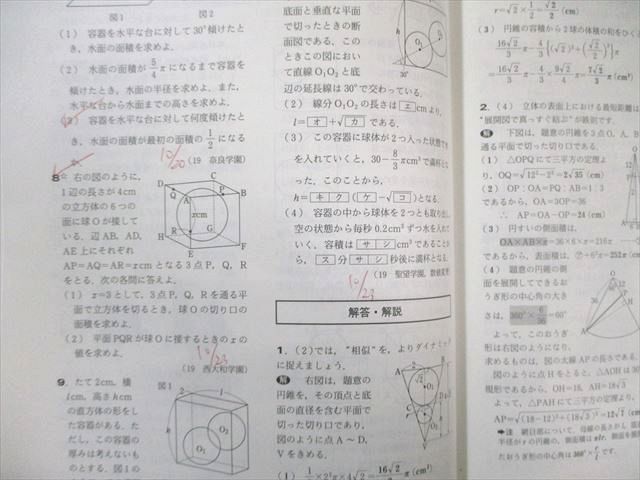 図1 図2
(1) 容器を水平な台に対して30°傾けたと
き，水面の面積を求めよ．
(2) 水面の面積が5/4πになるまで容器を
傾けたとき，水面の半径を求めよ．また，
水平な台から水面までの高さを求めよ．
(3) 容器を水平な台に対して何度傾けたと
き，水面の面積が最初の面積の1/2になる
か． 10/20 (19 奈良学園)
8* 右の図のように，
1辺の長さが4cm
の立方体の6つの
面に球Oが接して
いる．辺AB，AD，
AE上にそれぞれ
AP=AQ=AR=xcmとなる3点P，Q，R
をとる．次の各問に答えよ．
(1) x=3として，3点P，Q，Rを通る平
面で立方体を切るとき，球Oの切り口の
面積を求めよ．
(2) 平面PQRが球Oに接するときのxの
値を求めよ． 10/23
(19 西大和学園)
9. たて2cm，横
lcm，高さhcm
の直方体の形をし
た容器がある．た
だし，この容器の
厚みは考えないも
のとする．図1の
D C Q B P A xcm O R G H E F
図1
O₁ O₂
底面と垂直な平面
で切ったときの断
面図である．この
ときこの図におい
て直線O₁O₂と底
辺の延長線は30°で交わっている．
30°
(2) 線分O₁O₂の長さはエcmより，
l=オ+√カである．
(3) この容器に球体が2つ入った状態で水
を入れていくと，30-8/3πcm³で満杯とな
った．このことから，
h=キク(ケ-√コ)となる．
(4) 容器の中から球体を2つとも取り出し
空の状態から毎秒0.2cm³ずつ水を入れて
いく．容積はサシcm³であることか
ら，ス分サシ秒後に満杯となる．
(19 聖望学園，数値変更)
10/23
解答・解説
1. (2)では，“相似”を，よりダイナミック
に捉えましょう．
解 右図は，題意の
円錐を，その頂点と底
面の直径を含む平面で
切った切り口であり，
図のように点A～D，
Vをきめる．
(1) 1/3×2²π×4√2=16√2/3π(cm³)
A B O₁ C D O₂ V
r=√2×1/2=√2/2(cm)
(3) 円錐の容積から2球の体積の和をひくと
16√2/3π-4/3π{(√2)³+(√2/2)³}
=16√2/3π-4/3π×9√2/4=7√2/3π(cm³)
2. (4) 立体の表面上における最短距離は
“展開図で真っすぐ結ぶ”が鉄則です．
解 下図は，題意の円錐を3点O，A，B
通る平面で切った切り口である．
(1) △OPQにて三平方の定理よ
り，OQ=√(12²-2²)=2√35(cm)
(2) OP：OA=PQ：AB=1：3
であるから，OA=3OP=36
∴ AP=OA-OP=24(cm)
(3) 円すいの側面積は
OA×AB×π=36×6×π=216π
であるから，表面積は，⑦+6²π=252π(cm²)
(4) 題意の円錐の側
面を展開してできるお
うぎ形の中心角の大き
さは，360°×6/36=60°
よって，このおうぎ
形は右図のようになり，
求めるものは，図の太線APの長さである．
図のように点Hをとると，△AOHは30°
規形であるから，OH=18，AH=18√3
よって，△PAHにて三平方の定理より
AP=√((18-12)²+(18√3)²)=12√7(cm)